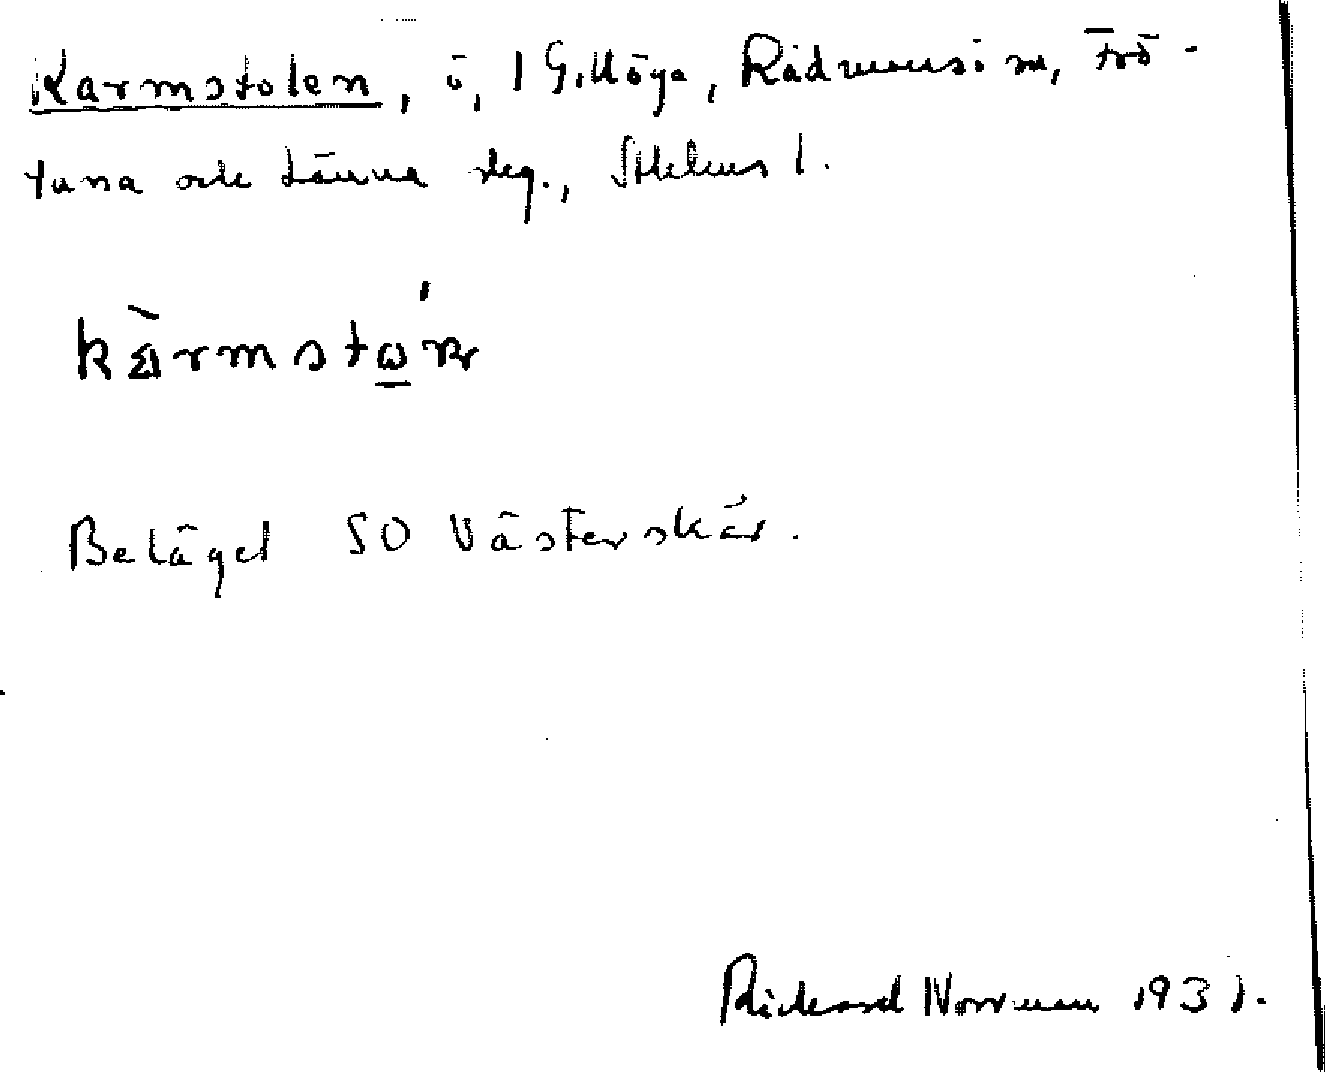 Karmstolen, ö, 1 Gillöga, Rådmansö sn, Frö-
tuna och Länna slg., Sthlms l.
Beläget SO Västerskär.
Rickard Norrman 1931.